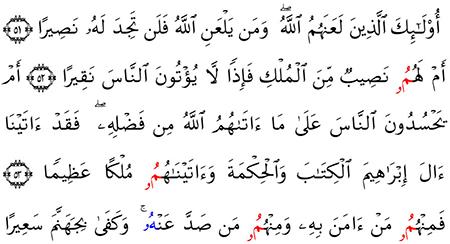 أُوْلَـٰٓئِكَ ٱلَّذِينَ لَعَنَهُمُ ٱللَّهُ ۖ وَمَن يَلْعَنِ ٱللَّهُ فَلَن تَجِدَ لَهُۥ نَصِيرًا ﴿٥١﴾
أَمْ لَهُمُۥ نَصِيبٌ مِّنَ ٱلْمُلْكِ فَإِذًا لَّا يُؤْتُونَ ٱلنَّاسَ نَقِيرًا ﴿٥٢﴾ أَمْ
يَحْسُدُونَ ٱلنَّاسَ عَلَىٰ مَا ءَاتَىٰهُمُ ٱللَّهُ مِن فَضْلِهِۦ ۖ فَقَدْ ءَاتَيْنَا
ءَالَ إِبْرَاهِيمَ ٱلْكِتَـٰبَ وَٱلْحِكْمَةَ وَءَاتَيْنَـٰهُمُۥ مُلْكًا عَظِيمًا ﴿٥٣﴾
فَمِنْهُمُۥ مَنْ ءَامَنَ بِهِۦ وَمِنْهُمُۥ مَن صَدَّ عَنْهُۥ ۚ وَكَفَىٰ بِجَهَنَّمَ سَعِيرًا